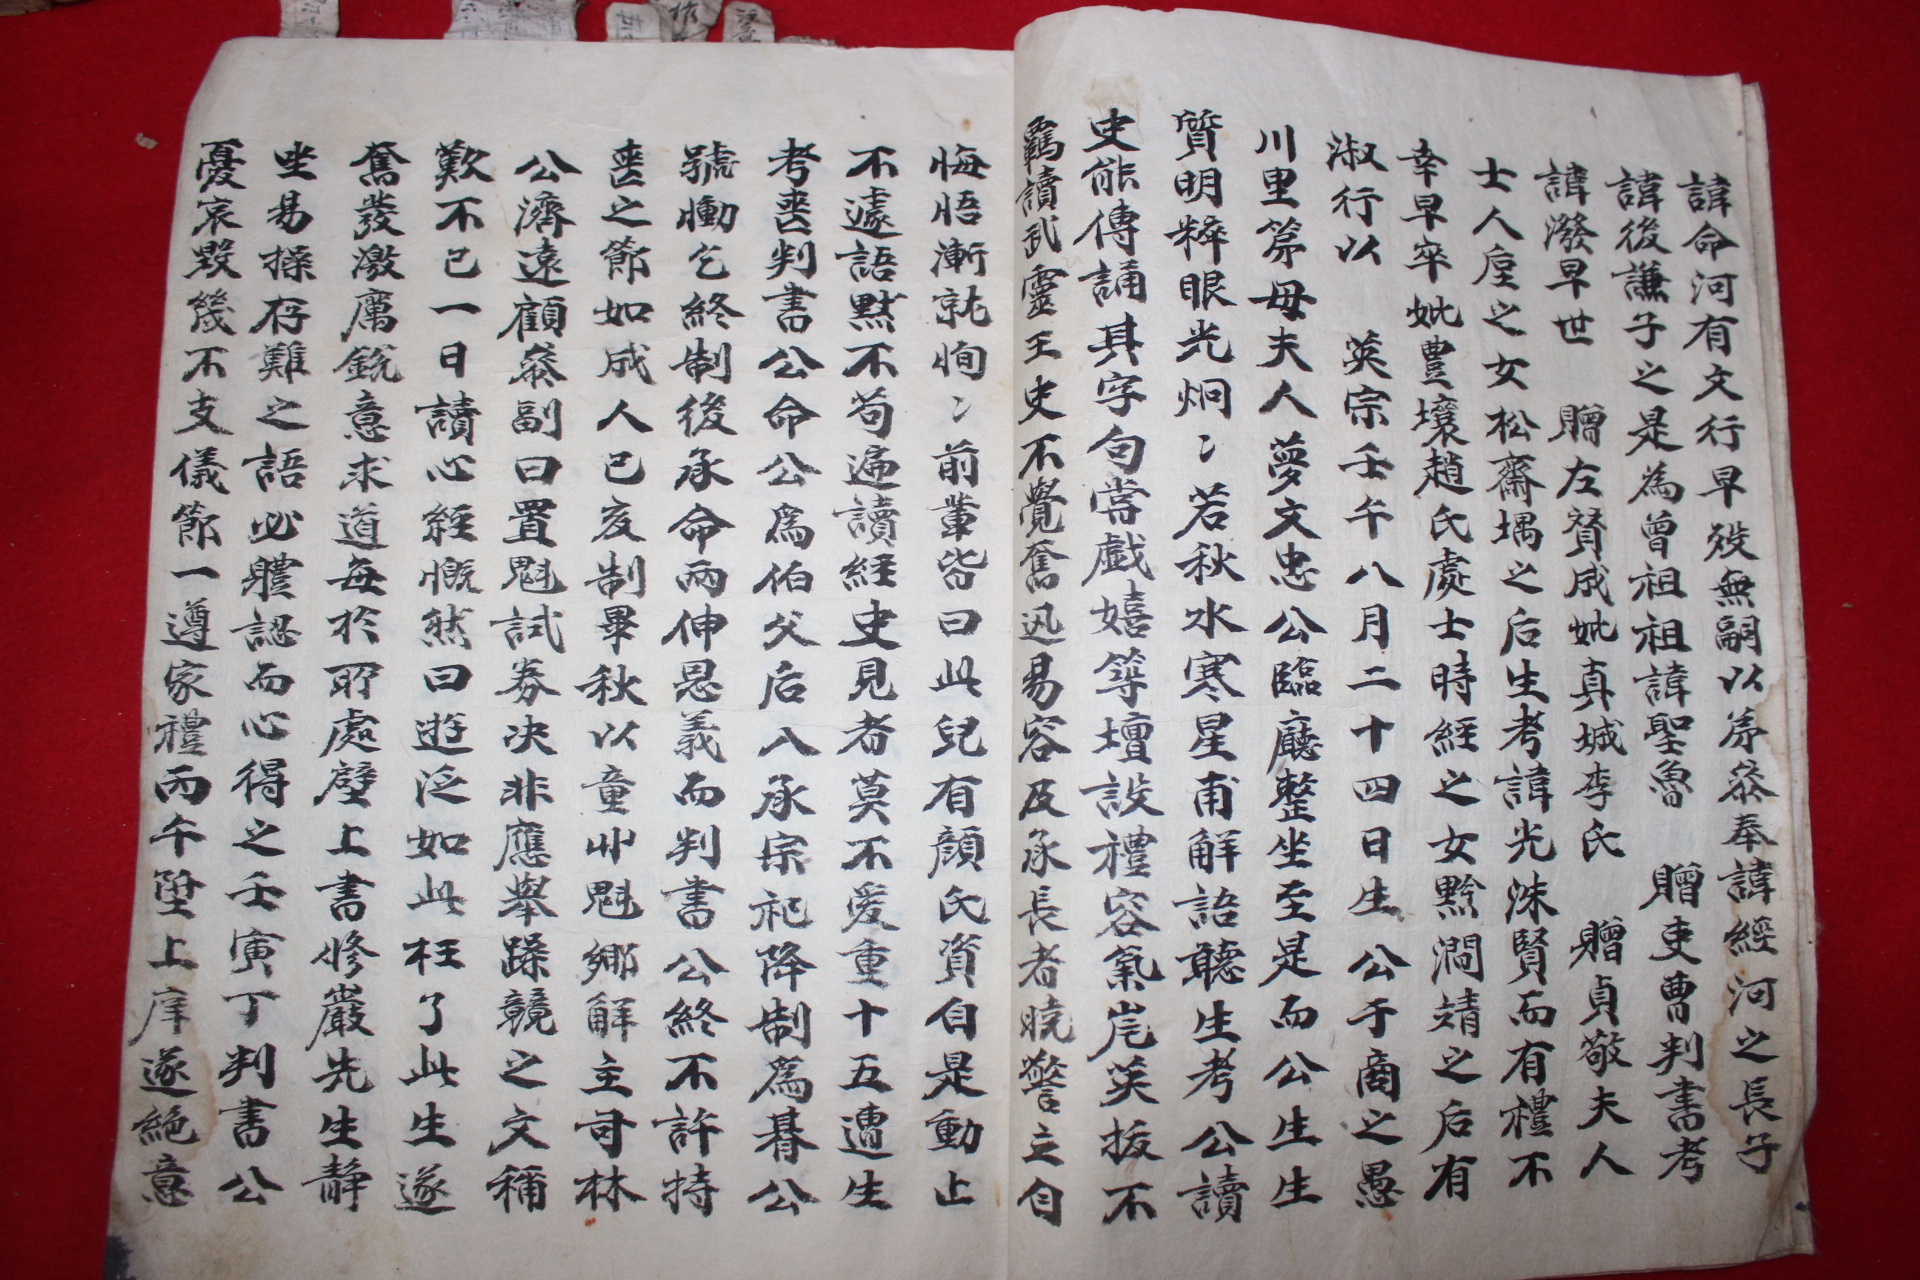 諱命河有文行早歿無嗣以弟參奉諱經河之長子
諱後謙子之是為曾祖祖諱聖魯 贈吏曹判書考
諱潑早世 贈左贊成妣真城李氏 贈貞敬夫人
士人垕之女松齋堣之后生考諱光洙賢而有禮不
幸早卒妣豊壤趙氏處士時經之女黔澗靖之后有
淑行以 英宗壬午八月二十四日生公于商之愚
川里第母夫人夢文忠公臨廳整坐至是而公生生
質明粹眼光炯〻若秋水寒星甫解語聽生考公讀
史能傳誦其字句嘗戲嬉等壇設禮容氣岸英拔不
羈讀武靈王史不覺奮迅易容及承長者曉警立自
悔悟漸就恂〻前輩皆曰此兒有顔氏資自是動止
不遽語默不苟遍讀經史見者莫不愛重十五遭生
考喪判書公命公爲伯父后入承宗祀降制爲朞公
號慟乞終制後承命兩伸恩義而判書公終不許持
喪之節如成人已亥制畢秋以童丱魁鄉解主司林
公濟遠顧參副曰置魁試券決非應擧躁競之文稱
歎不已一日讀心經慨然曰遊泛如此枉了此生遂
奮發激厲銳意求道每於所處壁上書修巖先生靜
坐易操存難之語必體認而心得之壬寅丁判書公
憂哀毀幾不支儀節一遵家禮丙午陞上庠遂絶意